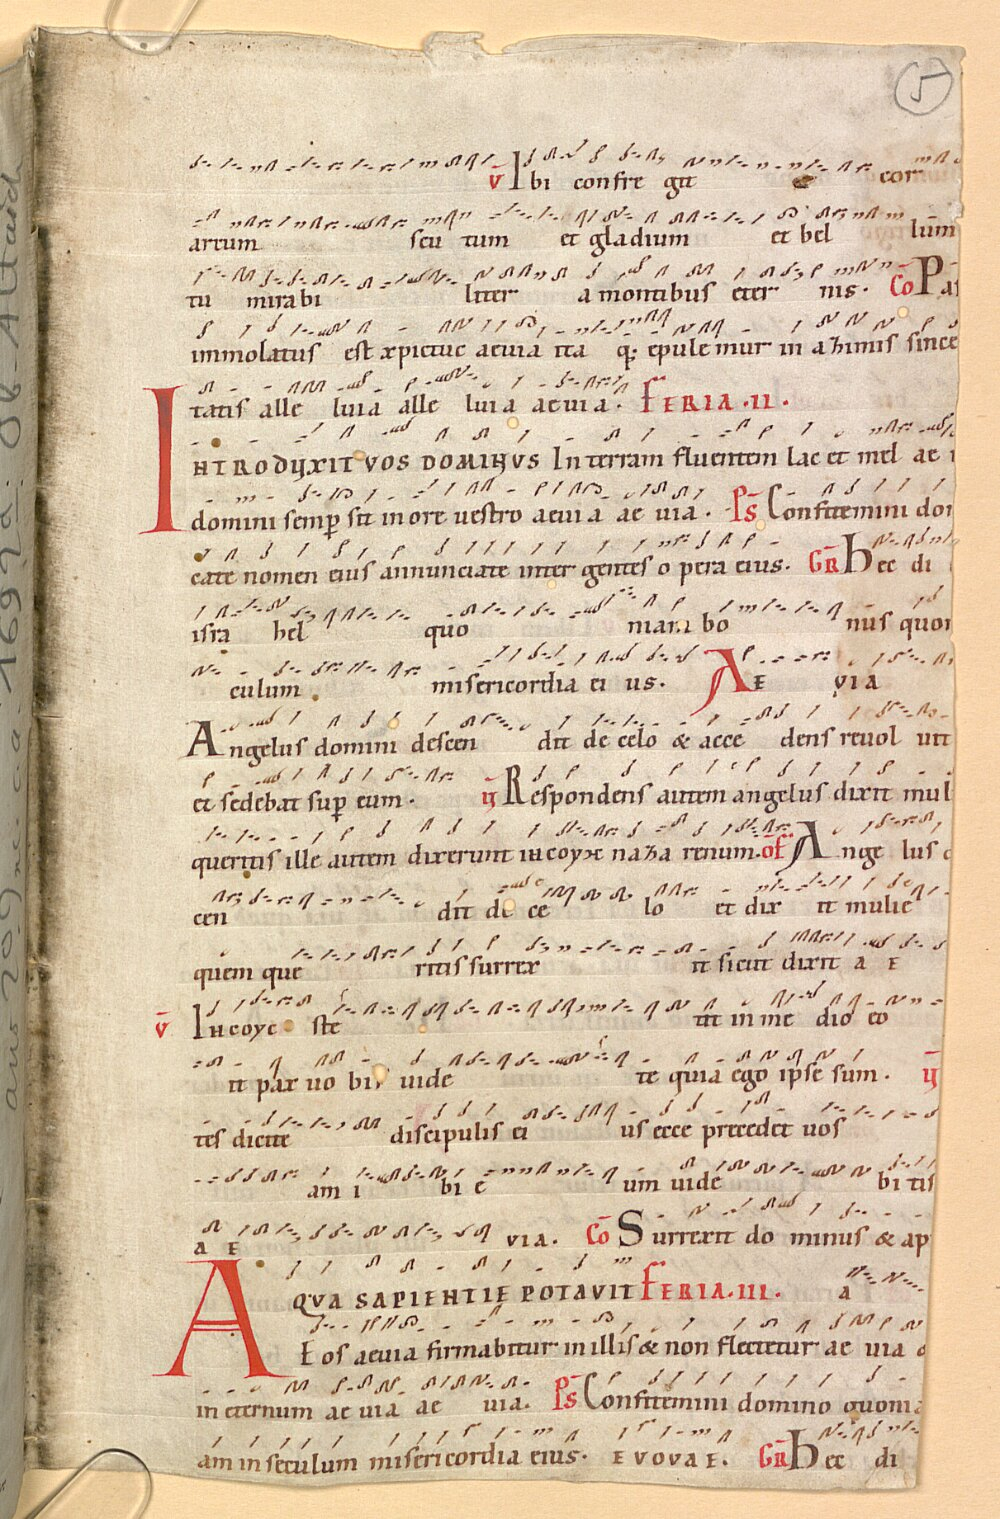 5
v Ibi confre git cor
arcum scu tum et gladium et bel lum
tu mirabi liter a montibus eter nis. Co Pas
immolatus est xpictuc aeuia ita q; epule mur in azimis since
tatis alle luia alle luia aeuia. FERIA .II.
INTRODUXIT VOS DOMINUS In terram fluentem lac et mel ae
domini semp sit in ore uestro aeuia ae uia. Ps Confitemini do
cate nomen eius annunciate inter gentes opera eius. GR hec di
isra hel quo niam bo nus quon
culum misericordia ei us. AE VIA
Angelus domini descen dit de celo & acce dens reuol uit
et sedebat sup eum. Respondens autem angelus dixit mul
queritis ille autem dixerunt ihcoyc naza renum. of Ange lus
cen dit de ce lo et dix it mulie
quem que ritis surrex it sicut dixit a e
v Ihcoyc ste tit in me dio eo
it pax uo bis uide te quia ego ipse sum.
tes dicite discipulis ei us ecce precedet uos
am i bi e um uide bi tis
a e via. Co Surrexit do minus & ap
AQVA SAPIENTIE POTAVIT FERIA.III. a
Eos aeuia firmabitur in illis & non flectetur ae uia
in eternum ae uia ae uia. Ps Confitemini domino quoni
am in seculum misericordia eius. EVOVAE. GR hec di